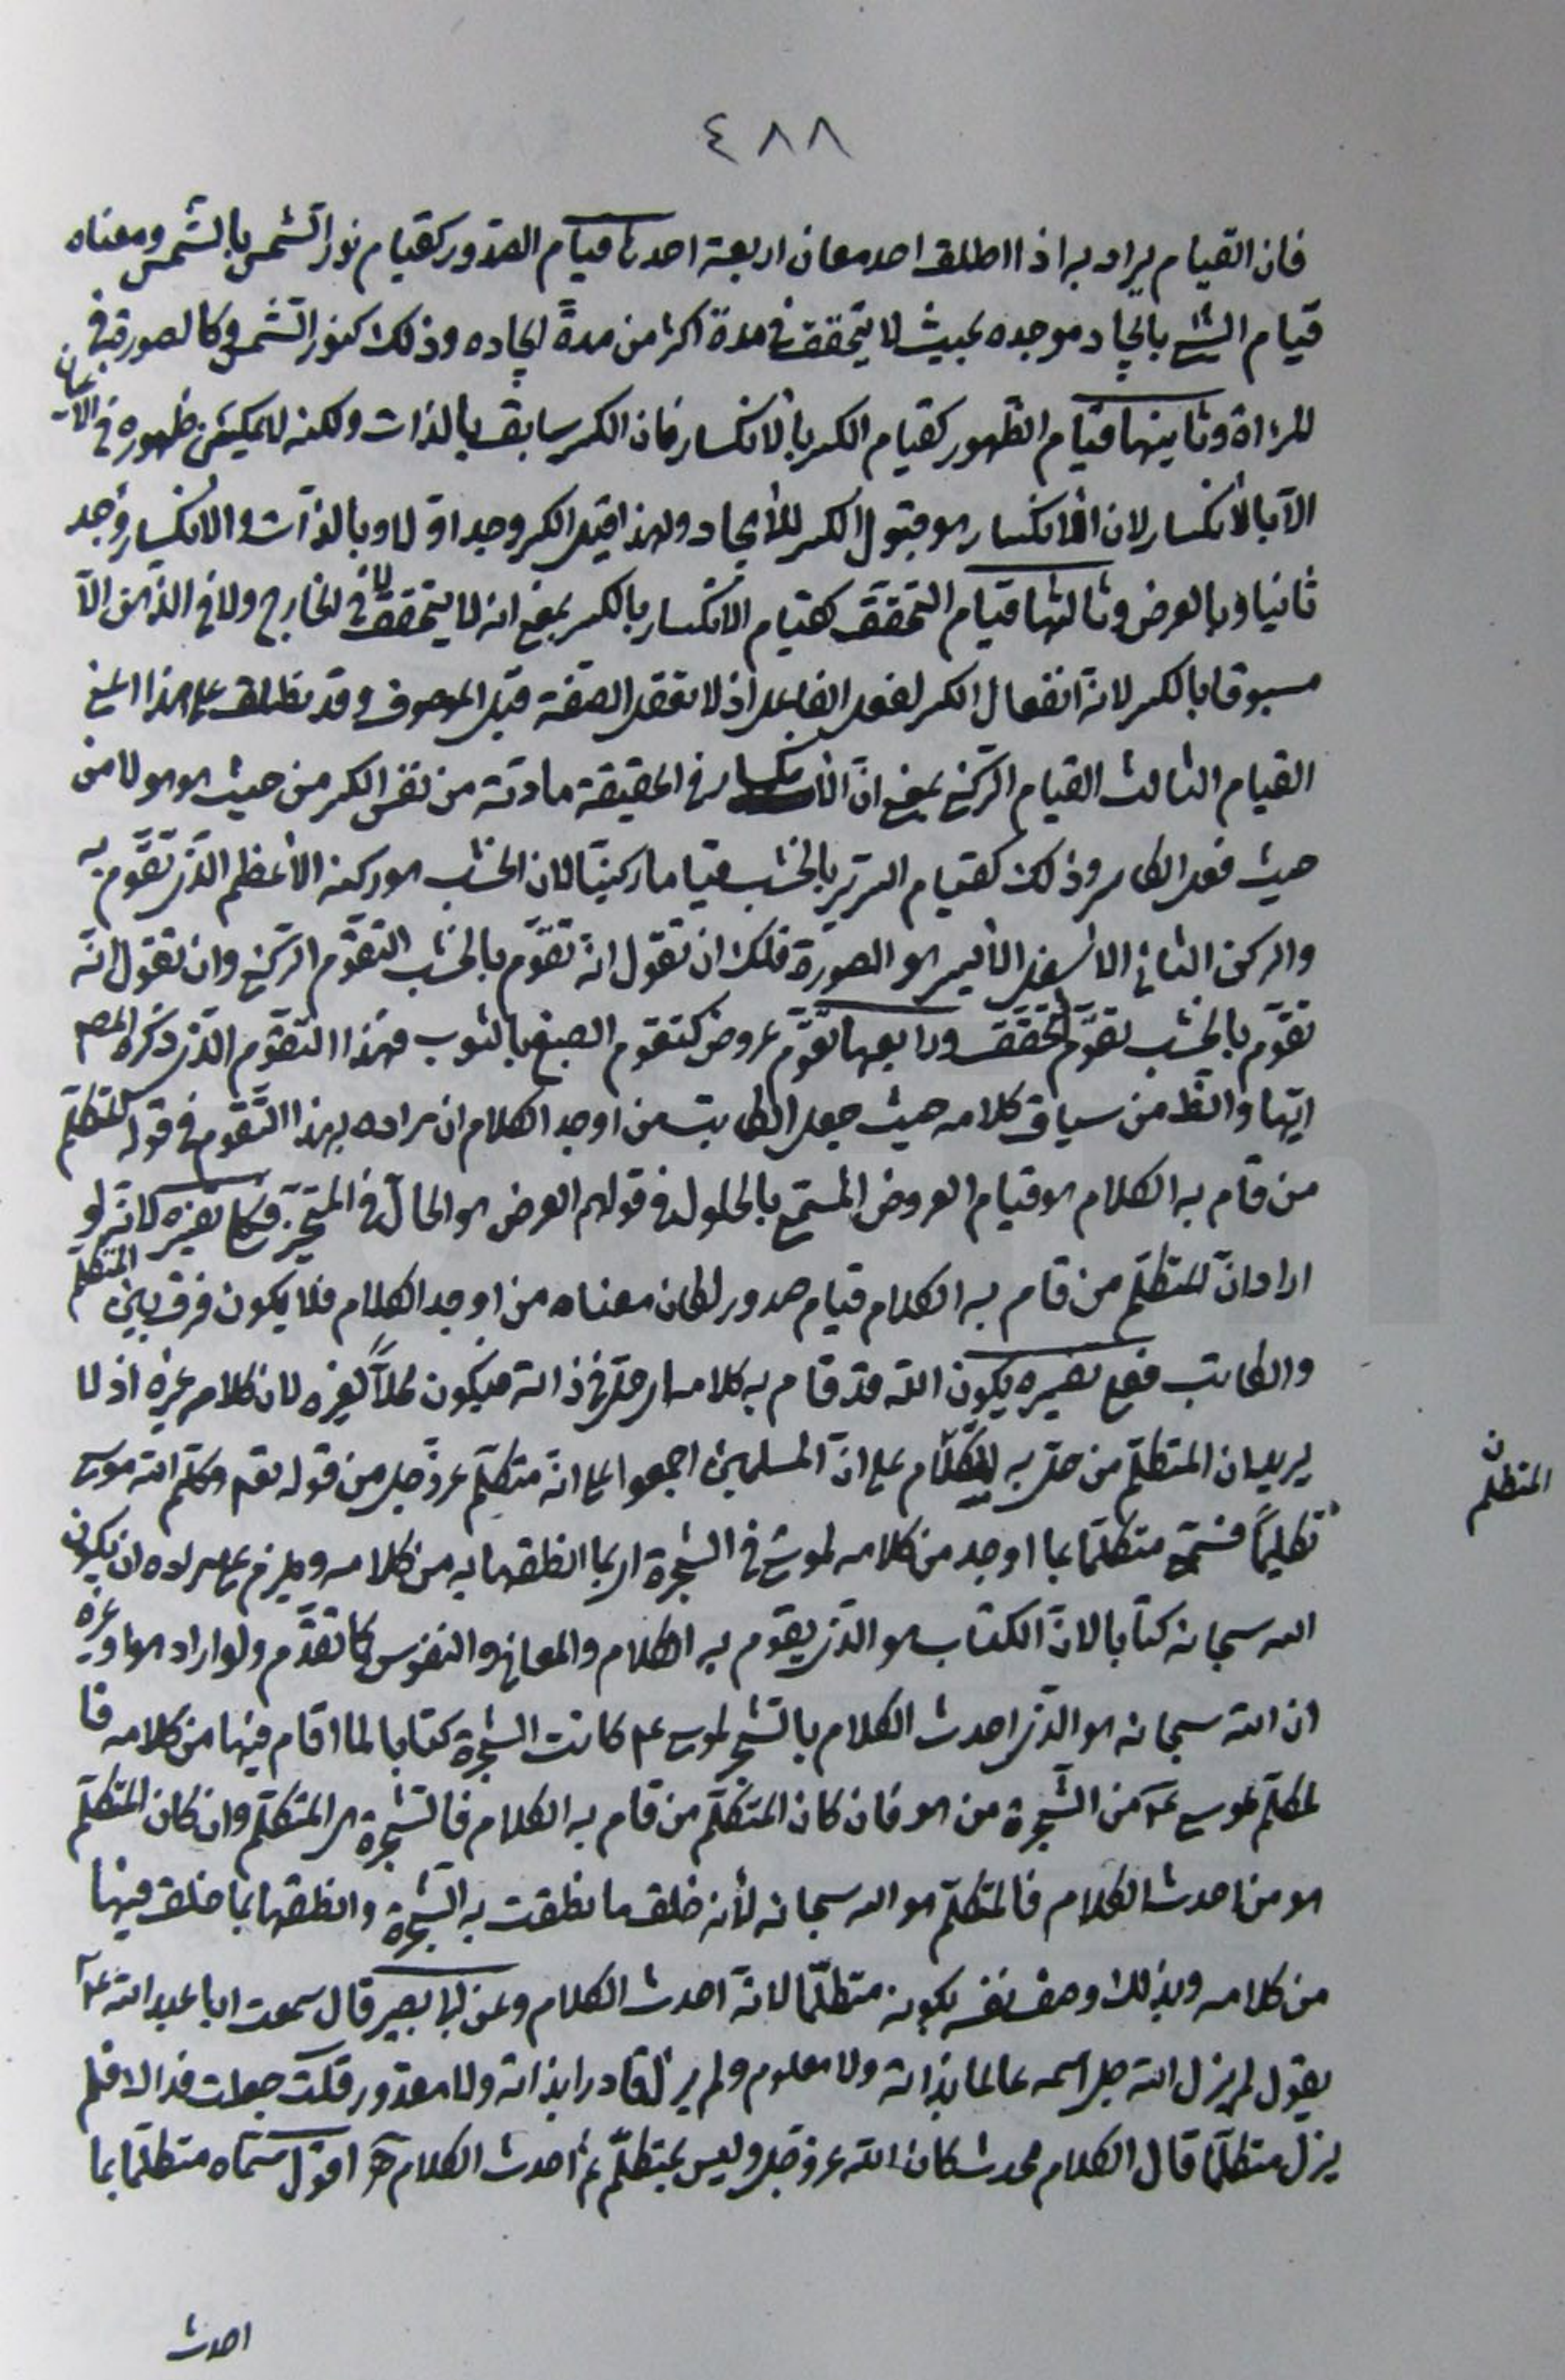 ٤٨٨
فان القيام يراد به اذا اطلق احد معان اربعة احدها قيام الصدور كقيام نور الشمس بالشمس ومعناه
قيام الشئ بايجاد موجده بحيث لا يتحقق في مدة اكثر من مدة ايجاده وذلك كنور الشمس وكالصورة في
المرءاة وثانيها قيام الظهور كقيام الكسر بالانكسار فان الكسر سابق بالذات ولكنه لا يمكن ظهوره في الاعيان
الّا بالانكسار لان الانكسار هو قبول الكسر للايجاد ولهذا قيل الكسر وجد اولا وبالذات والانكسار وجد
ثانيا وبالعرض وثالثها قيام التحقق كقيام الانكسار بالكسر بمعنى انه لا يتحقق لا في الخارج ولا في الذهن الّا
مسبوقا بالكسر لانه انفعال الكسر لفعل الفاعل اذ لا تعقل الصفة قبل الموصوف وقد يطلق على هذا المعنى
القيام الثالث القيام الركني بمعنى ان الانكسار في الحقيقة مادته من نفس الكسر من حيث هو هو لا من
حيث فعل الكاسر وذلك كقيام السرير بالخشب قياما ركنيّا لان الخشب هو ركنه الأعظم الذي تقوّم به
والركن الثاني الاسفل الأيسر هو الصورة فلك ان تقول انه تقوّم بالخشب التقوّم الركني وان تقول انّه
تقوّم بالخشب تقوّم تحقّق ورابعها تقوّم عروض كتقوم الصبغ بالثوب فهذا التقوّم الذي ذكره المص
ايّها والظ من سياق كلامه حيث جعل الكاتب من اوجد الكلام ان مراده بهذا التقوم في قوله المتكلّم
من قام به الكلام هو قيام العروض المسمّى بالحلول في قولهم العرض هو الحالّ في المتحيّز كما تفسيره لانّه لو
اراد انّ المتكلّم من قام به الكلام قيام صدور لكان معناه من اوجد الكلام فلا يكون فرق بين المتكلّم
والكاتب فعلى تفسيره يكون الله قد قام به كلامه اي حلّ في ذاته فيكون محلاً لغيره لان كلامه غيره اذ لا
يريد ان المتكلّم من حلّ به المتكلّم على انّ المسلمين اجمعوا على انه متكلّم عزّ وجل من قوله تعم وكلّم الله موسى
تكليماً فسمّى متكلّما بما اوجد من كلامه لموسى في الشجرة اي بما انطقها به من كلامه ويلزم على مراده ان يكون
الله سبحانه كتابا لانّ الكتاب هو الذي يقوم به الكلام والمعاني والنفوس كما تقدّم ولو اراد هو او غيره
ان الله سبحانه هو الذي احدث الكلام بالشجر لموسى عم كانت الشجرة كتابا لما اقام فيها من كلامه فا
لمكلّم لموسى عم من الشجرة من هو فان كان المتكلّم من قام به الكلام فالشجرة هي المتكلّم وان كان المتكلّم
هو من احدث الكلام فالمتكلّم هو الله سبحانه لأنه خلق ما نطقت به الشجرة وانطقها بما خلق فيها
من كلامه وبذلك وصف نفسه بكونه متكلّما لانّه احدث الكلام وعن ابي بصير قال سمعت ابا عبد الله عم
يقول لم يزل الله جل اسمه عالما بذاته ولا معلوم ولم يزل قادرا بذاته ولا مقدور قلت جعلت فداك فلم
يزل متكلّما قال الكلام محدث كان الله عز وجل وليس بمتكلّم ثم احدث الكلام اقول سمّاه متكلّما بما
احدث
المتكلم ن